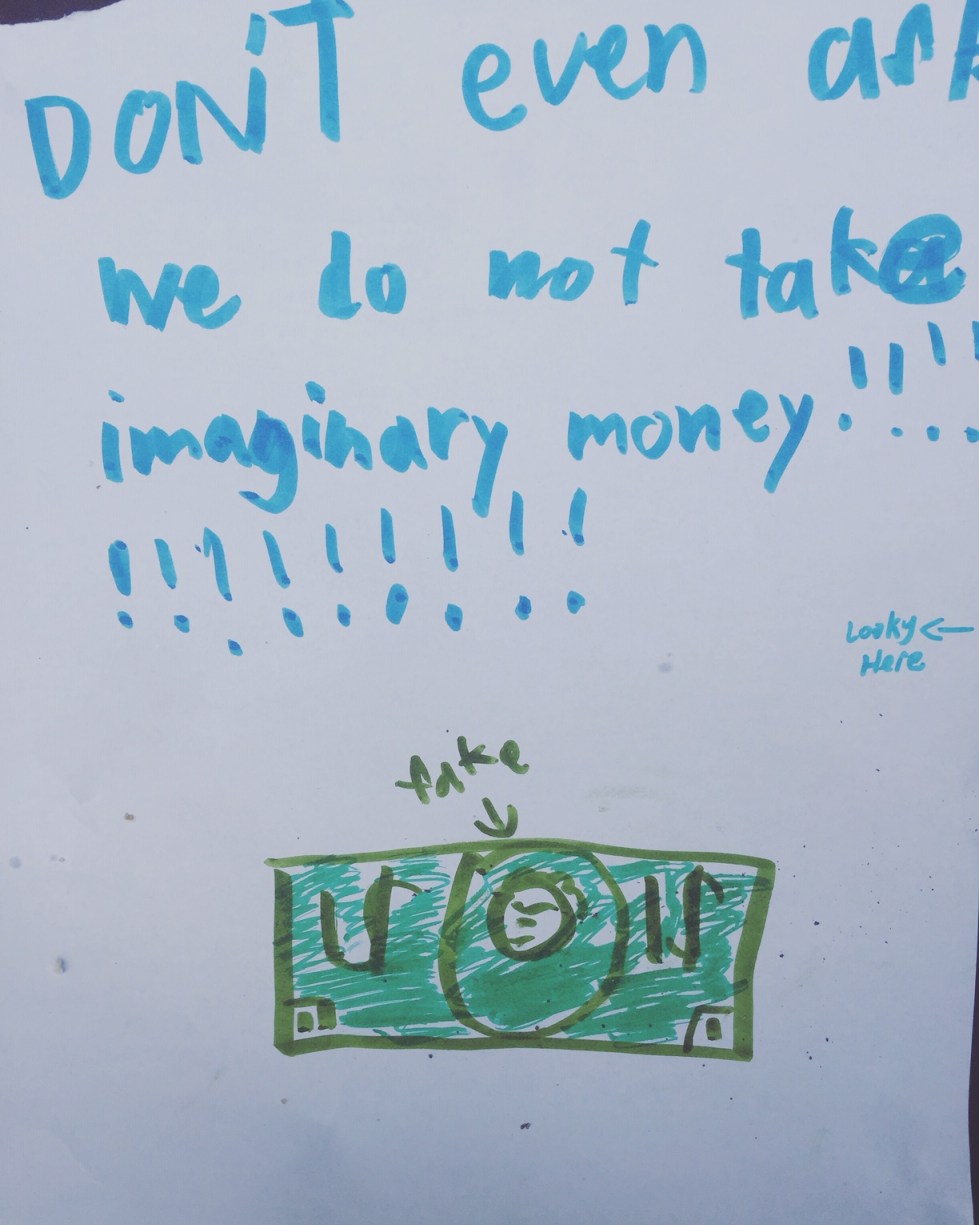 DON'T even ask
we do not take
imaginary money!!!!
!!!!!!!!!
Looky ←
Here
fake
↓